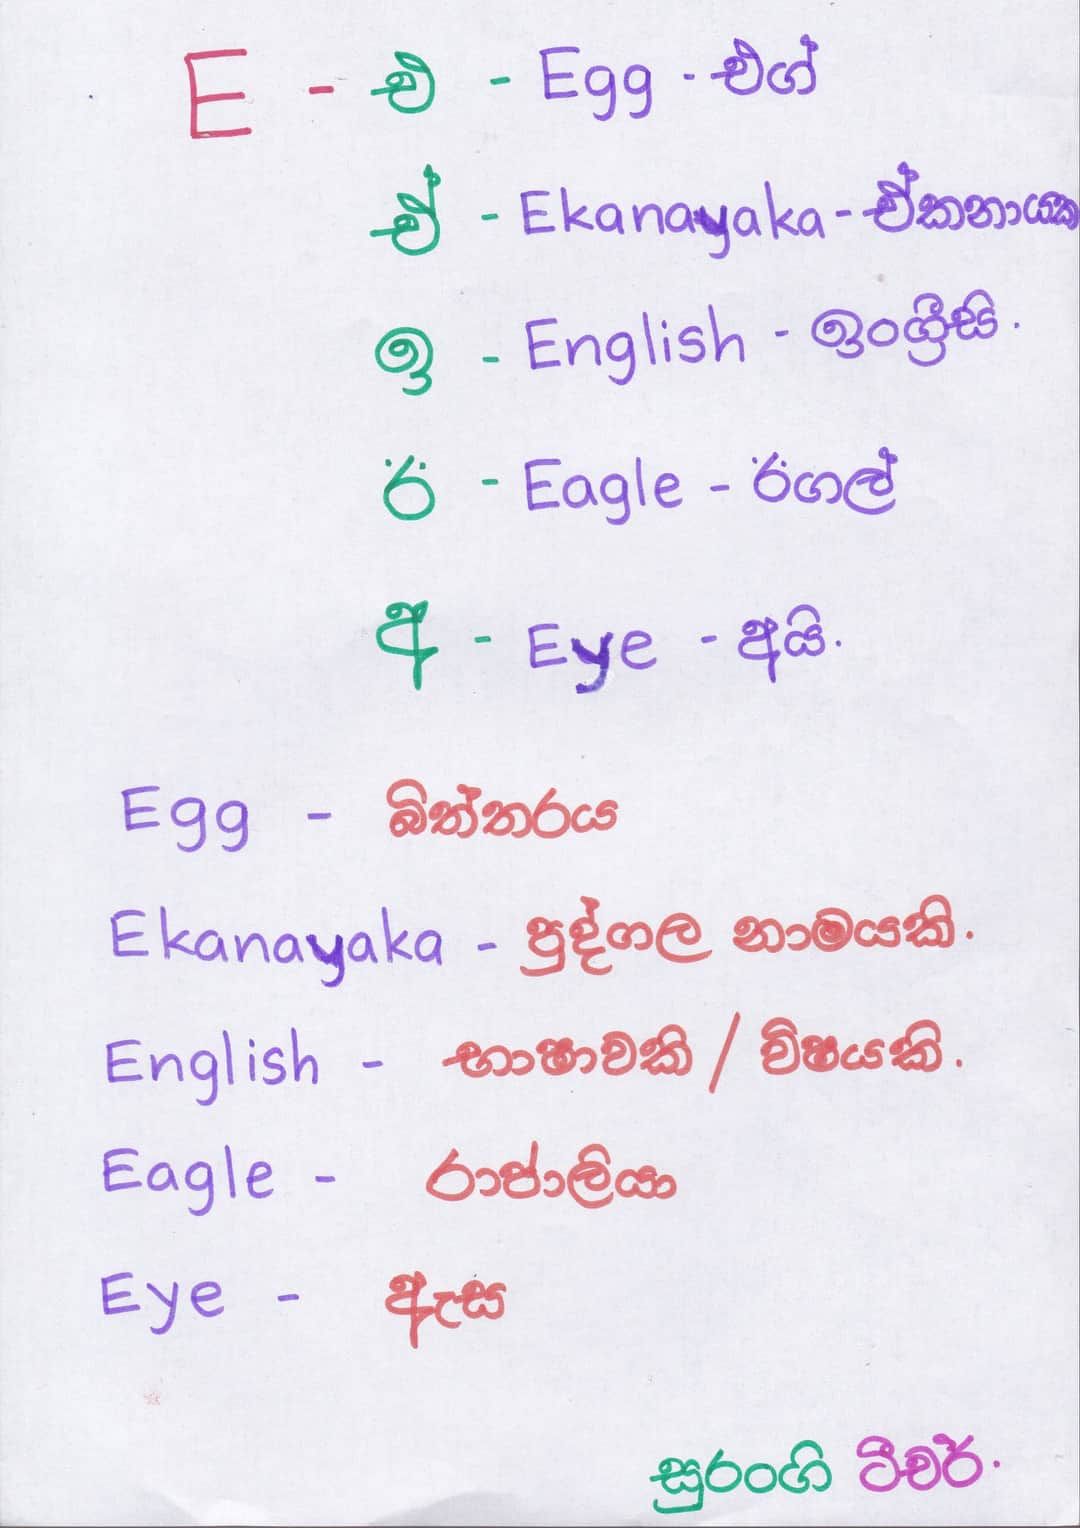 E - එ - Egg - එග්
ඒ - Ekanayaka - ඒකනායක
ඉ - English - ඉංග්‍රීසි.
ඊ - Eagle - ඊගල්
අ - Eye - අයි.
Egg - බිත්තරය
Ekanayaka - පුද්ගල නාමයකි.
English - භාෂාවකි / විෂයකි.
Eagle - රාජාලියා
Eye - ඇස
සුරංගි ටීචර්.